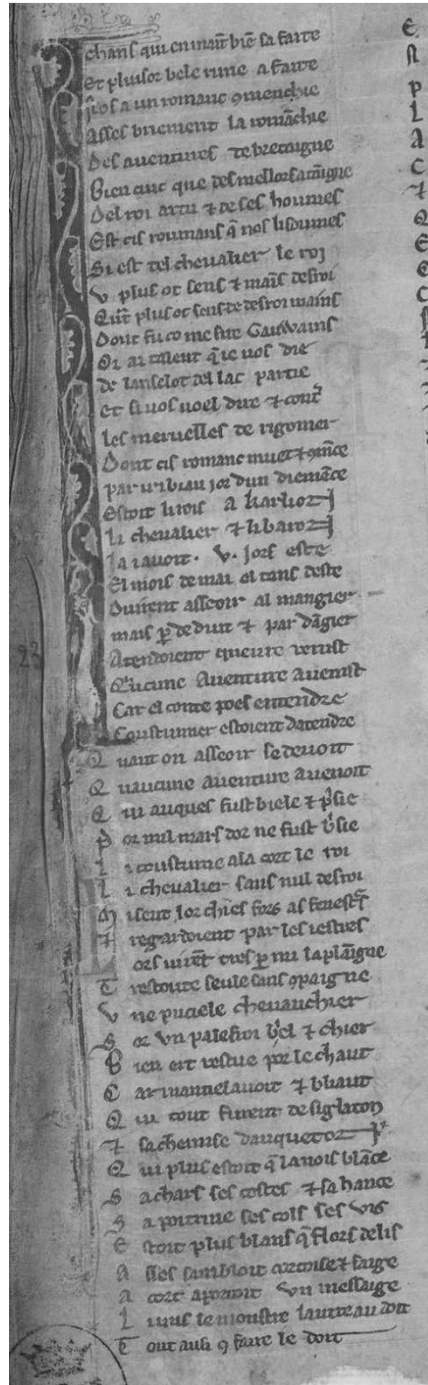 ehans qui en maīt biē sa faite
Et pluisor bele rime a faite
Nos a un romanc 9menchie
Asses briement la romāchie
Des aventures de bretaigne
Bien cuic que des mellors ataigne
Del roi artu & de ses houmes
Est cis roumans q̄ nos lisoumes
Si est del chevalier le roi
v plus ot sens & mains desroi
plus ot sens de desroi mains
Dont fu co me sire Gauwains
Or ai talent q̄ ie vos die
de lanselot del lac partie
et si vos voel dire & cont'
Les mervelles de rigomer
Dont cis romanc muet & 9mēce
par un biau jor dun diemēce
Estoit li rois a karlion
Li chevalier & li baron
Ja i avoit . v . jors este
El mois de mai el tans deste
Durent asseoir al mangier
mais p̄ deduit & par dāgier
Atendoient que uvre venist
Qaucune aventure avenist
Car el conte poes entendre
Coustumier estoient datendre
Q uant on asseoir se devoit
Q uaucune aventure avenoit
Q ui auques fust biele & p'sie
P or mil mars dor ne fust b'sie
L i coustume a la cort le roi
L i chevalier sans nul desroi
M isent lor chies fors as fenest's
& regardoient par les iestres
ors virēt tres p̄ mi la plāigne
T restoute seule sans 9paigne
V ne puciele chevauchier
S or un palefroi b'el & chier
B ien ert vestue por le chaut
C ar mantiel avoit & bliaut
Q ui tout furent de siglaton
& sa chemise dauqueton
Q ui plus estoit q̄ la nois blāce
S a chars ses costes & sa hance
S a poitrine ses cols ses vis
E stoit plus blans q̄ flors de lis
A sses sambloit cortoise & saige
A cort aportoit un messaige
L i uns le monstre lautre au doit
T out ausi 9 faire le doit